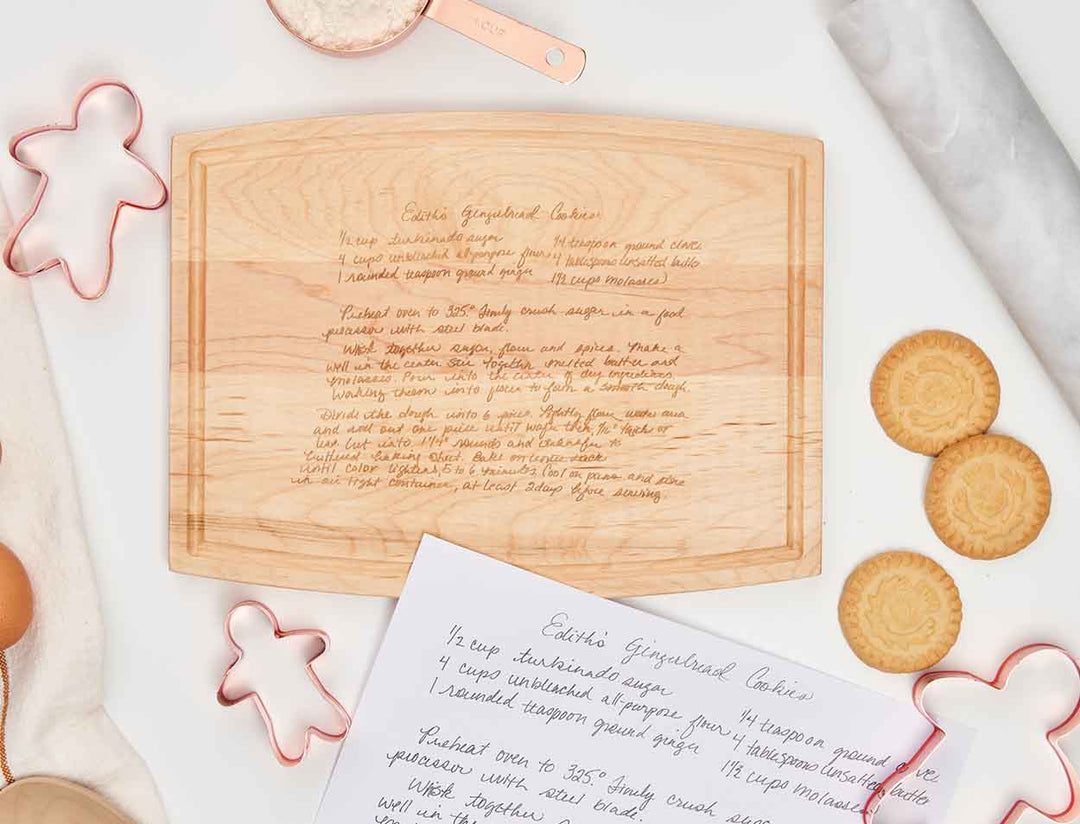 1 CUP
Edith's Gingerbread Cookies
1/2 cup turbinado sugar 1/4 teaspoon ground clove
4 cups unbleached all-purpose flour 4 tablespoons unsalted butter
1 rounded teaspoon ground ginger 1 1/2 cups molasses
Preheat oven to 325° Finely crush sugar in a food
processor with steel blade.
Whisk together sugar, flour and spices. Make a
well in the center Stir together melted butter and
molasses. Pour into the center of dry ingredients
Working them into flour to form a smooth dough.
Divide the dough into 6 pieces Lightly flour work area
and roll out one piece until wafer thin, 1/16" thick or
less Cut into 1 1/4" rounds and transfer to
buttered baking sheet. Bake on center rack
until color lightens, 5 to 6 minutes. Cool on pans and store
in air tight container, at least 2 days before serving.
Edith's Gingerbread Cookies
1/2 cup turbinado sugar 1/4 teaspoon ground clove
4 cups unbleached all-purpose flour 4 tablespoons unsalted butter
1 rounded teaspoon ground ginger 1 1/2 cups molasses
Preheat oven to 325° Finely crush
processor with steel blade.
Whisk together
well in the